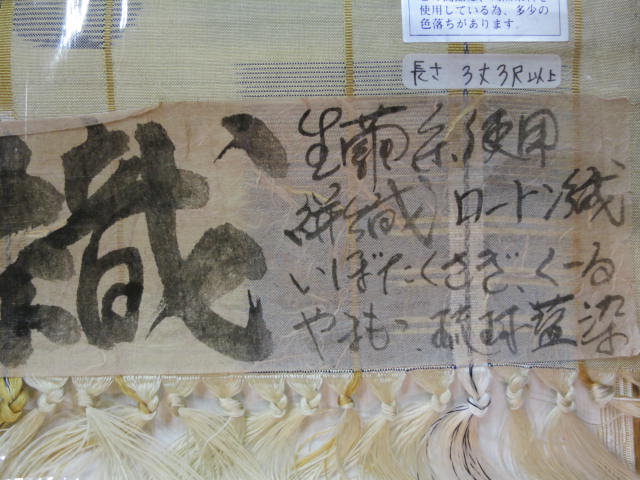 使用している為、多少の
色落ちがあります。
長さ 3丈3尺以上
織
生繭糸使用
絣織 ロートン織
いぼたくさぎ、くーる
やまもも、琉球藍染